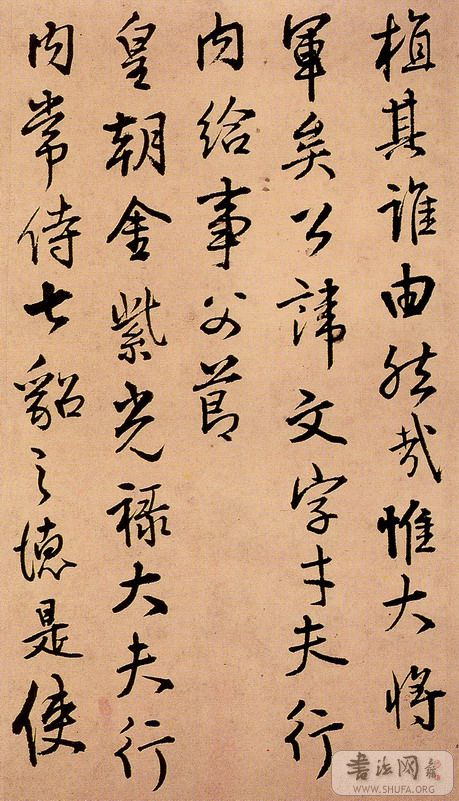 植其誰由然哉惟大将
軍矣公諱文字才夫行
内給事父節
皇朝金紫光禄大夫行
内常侍七貂之德是使
書法网
WWW.SHUFA.ORG